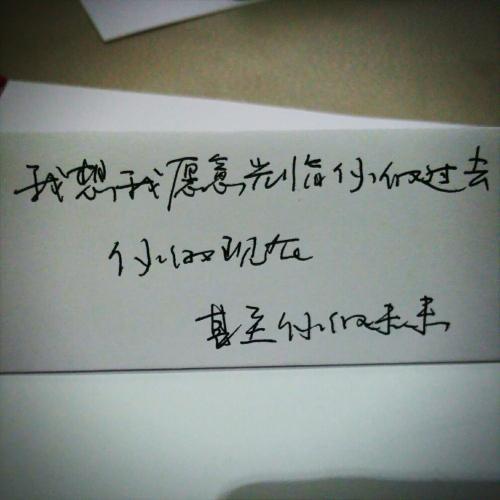 我想,我愿意光临你的过去
你的现在
甚至你的未来